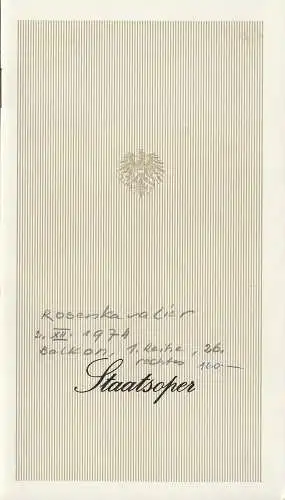 Rosenkavalier
2. XII. 1974
Balkon, 1. Reihe, 26.
rechts 160.—
Staatsoper